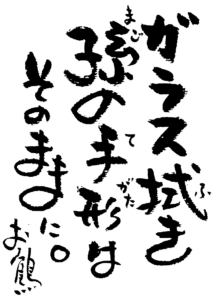 ガラス拭き
孫の手形は
そのままに。
お鶴